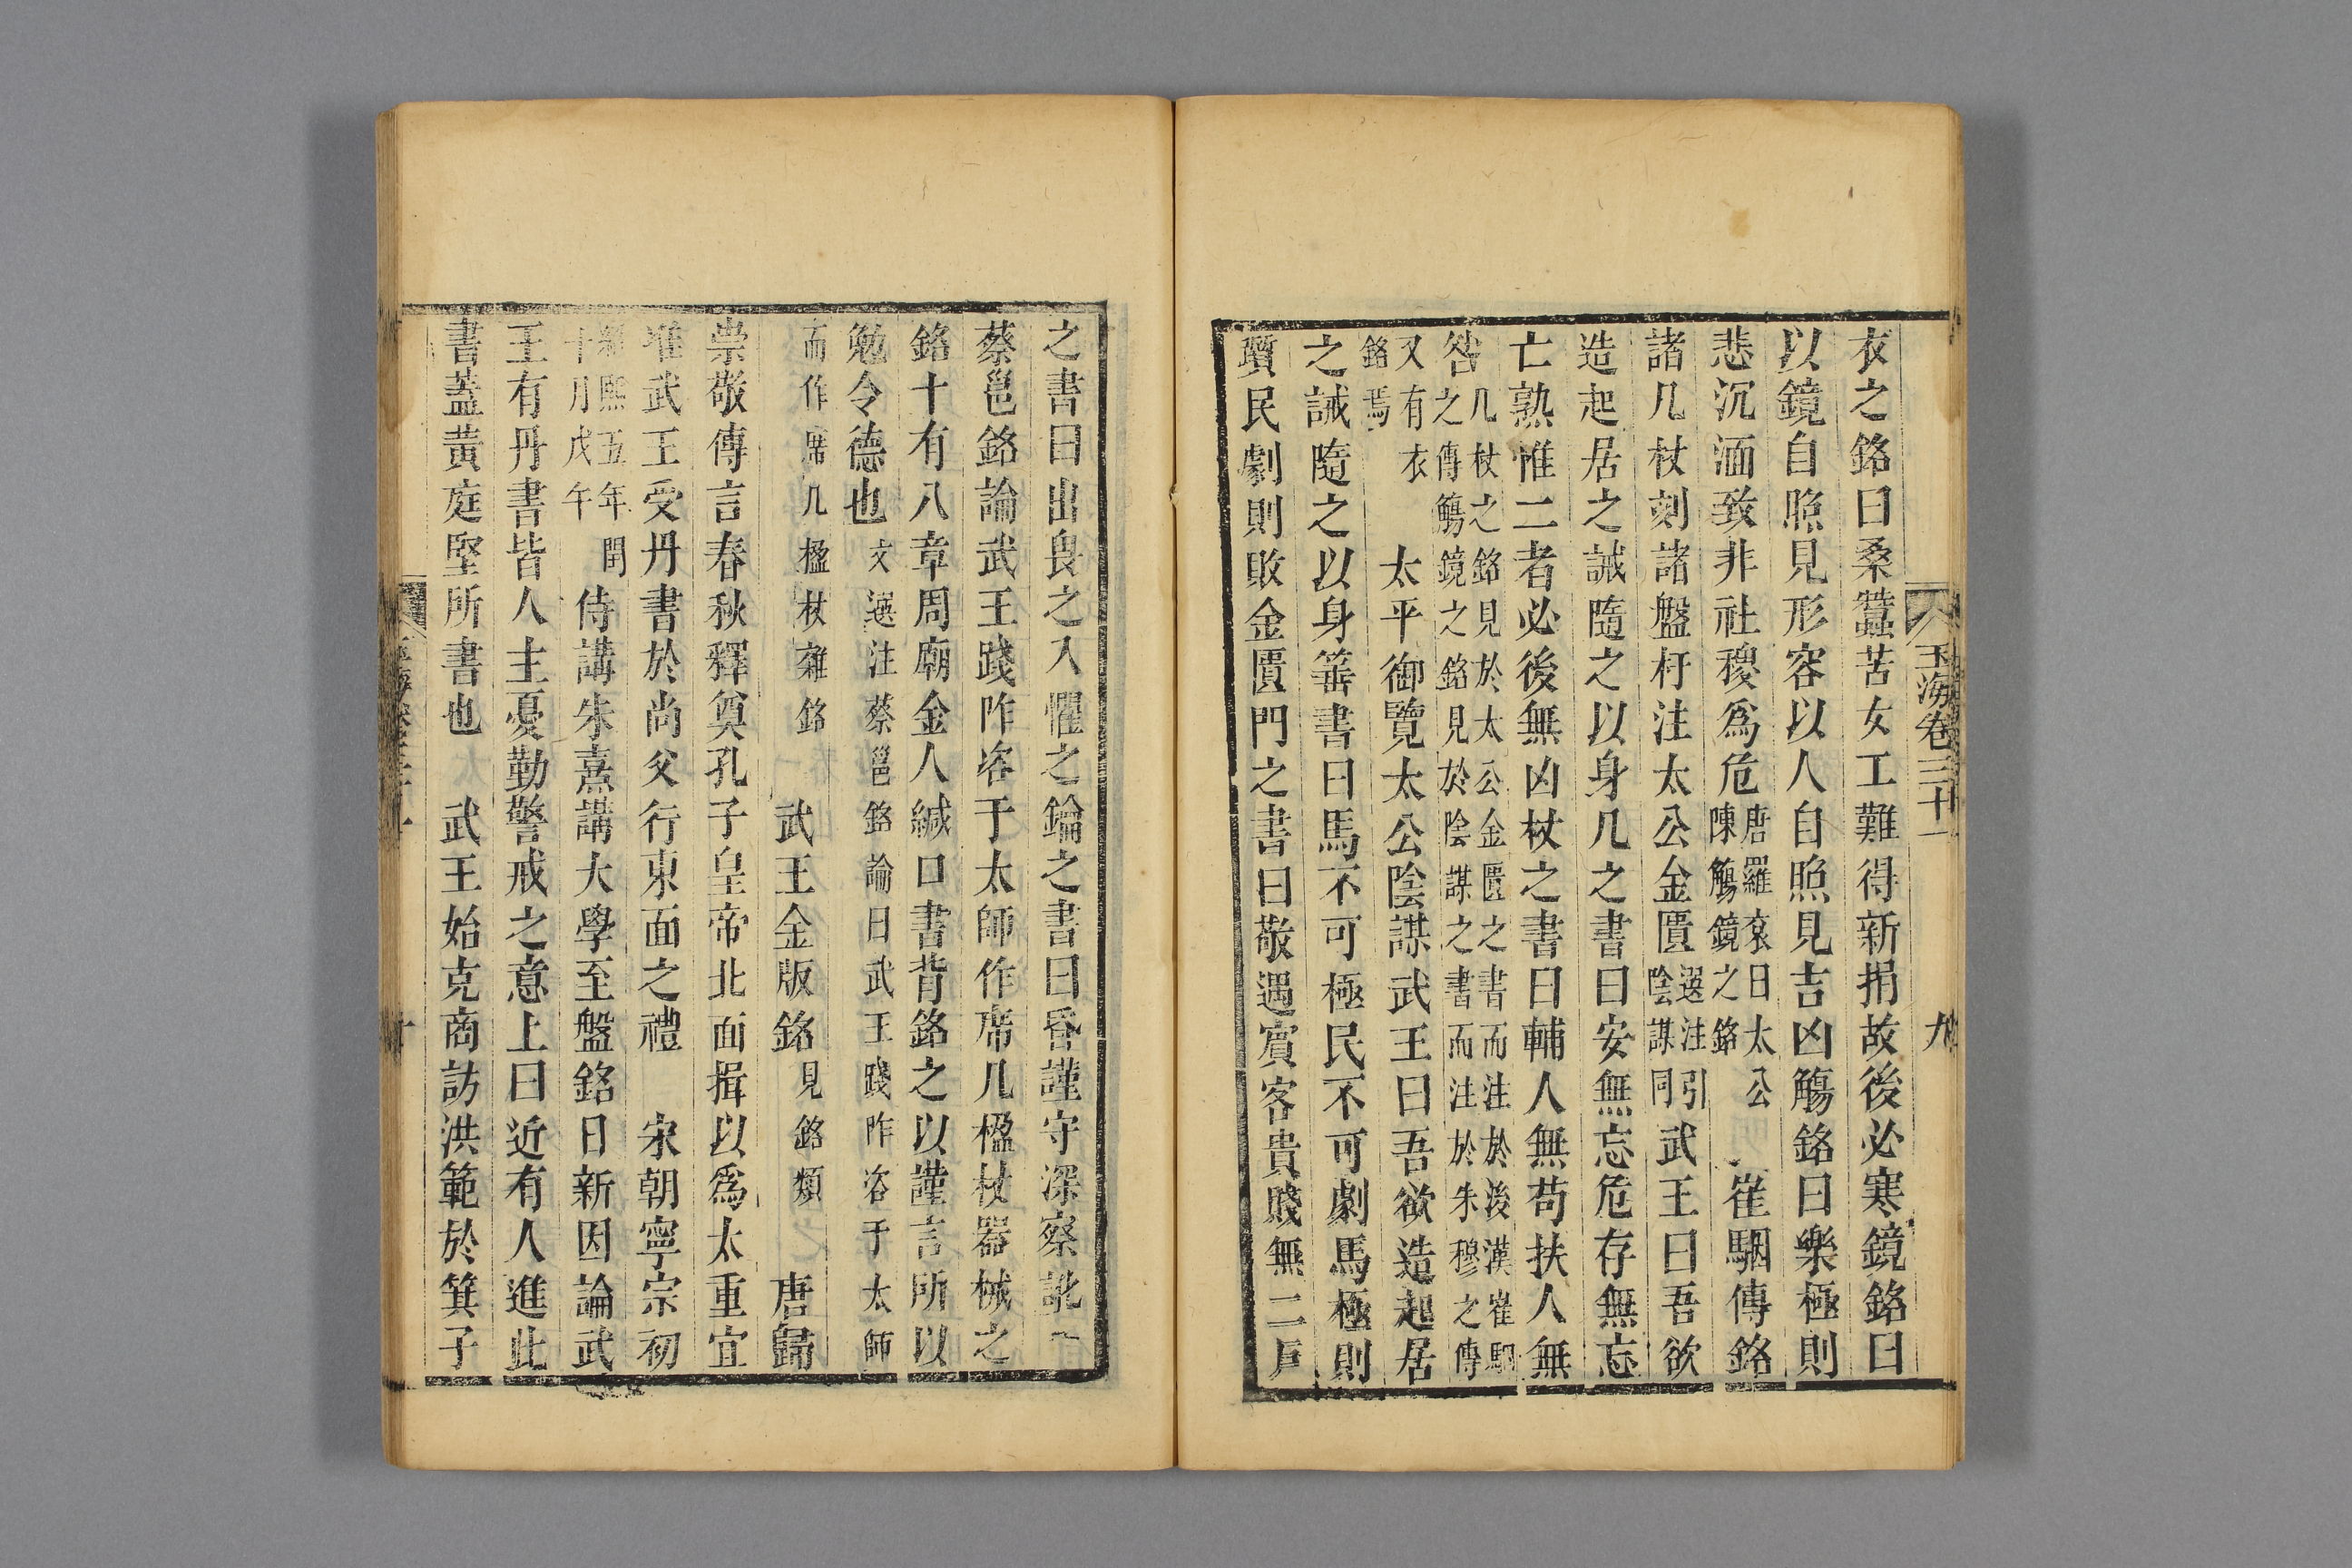 玉海卷三十一 九
衣之銘曰桑蠶苦女工難得新捐故後必寒鏡銘曰
以鏡自照見形容以人自照見吉凶觴銘曰樂極則
悲沉湎致非社稷爲危
唐羅袞曰太公
陳觴鏡之銘
崔駰傳銘
諸几杖刻諸盤杅注太公金匱
選注引
陰謀同
武王曰吾欲
造起居之誡隨之以身几之書曰安無忘危存無忘
亡熟惟二者必後無凶杖之書曰輔人無苟扶人無
咎
几杖之銘見於太公金匱之書而注於後漢崔駰
之傳觴鏡之銘見於陰謀之書而注於朱穆之傳
又有衣
銘焉
太平御覽太公陰謀武王曰吾欲造起居
之誡隨之以身箠書曰馬不可極民不可劇馬極則
躓民劇則敗金匱門之書曰敬遇賓客貴賤無二戶
之書曰出畏之入懼之鑰之書曰昏謹守深察訛
蔡邕銘論武王踐阼咨于太師作席几楹杖器械之
銘十有八章周廟金人緘口書背銘之以謹言所以
勉令德也
文選注蔡邕銘論曰武王踐阼咨于太師
而作席几楹杖雜銘
武王金版銘
見銘類
唐歸
崇敬傳言春秋釋奠孔子皇帝北面揖以爲太重宜
准武王受丹書於尚父行東面之禮 宋朝寧宗初
紹熙五年閏
十月戊午
侍講朱熹講大學至盤銘日新因論武
王有丹書皆人主憂勤警戒之意上曰近有人進此
書蓋黃庭堅所書也 武王始克商訪洪範於箕子